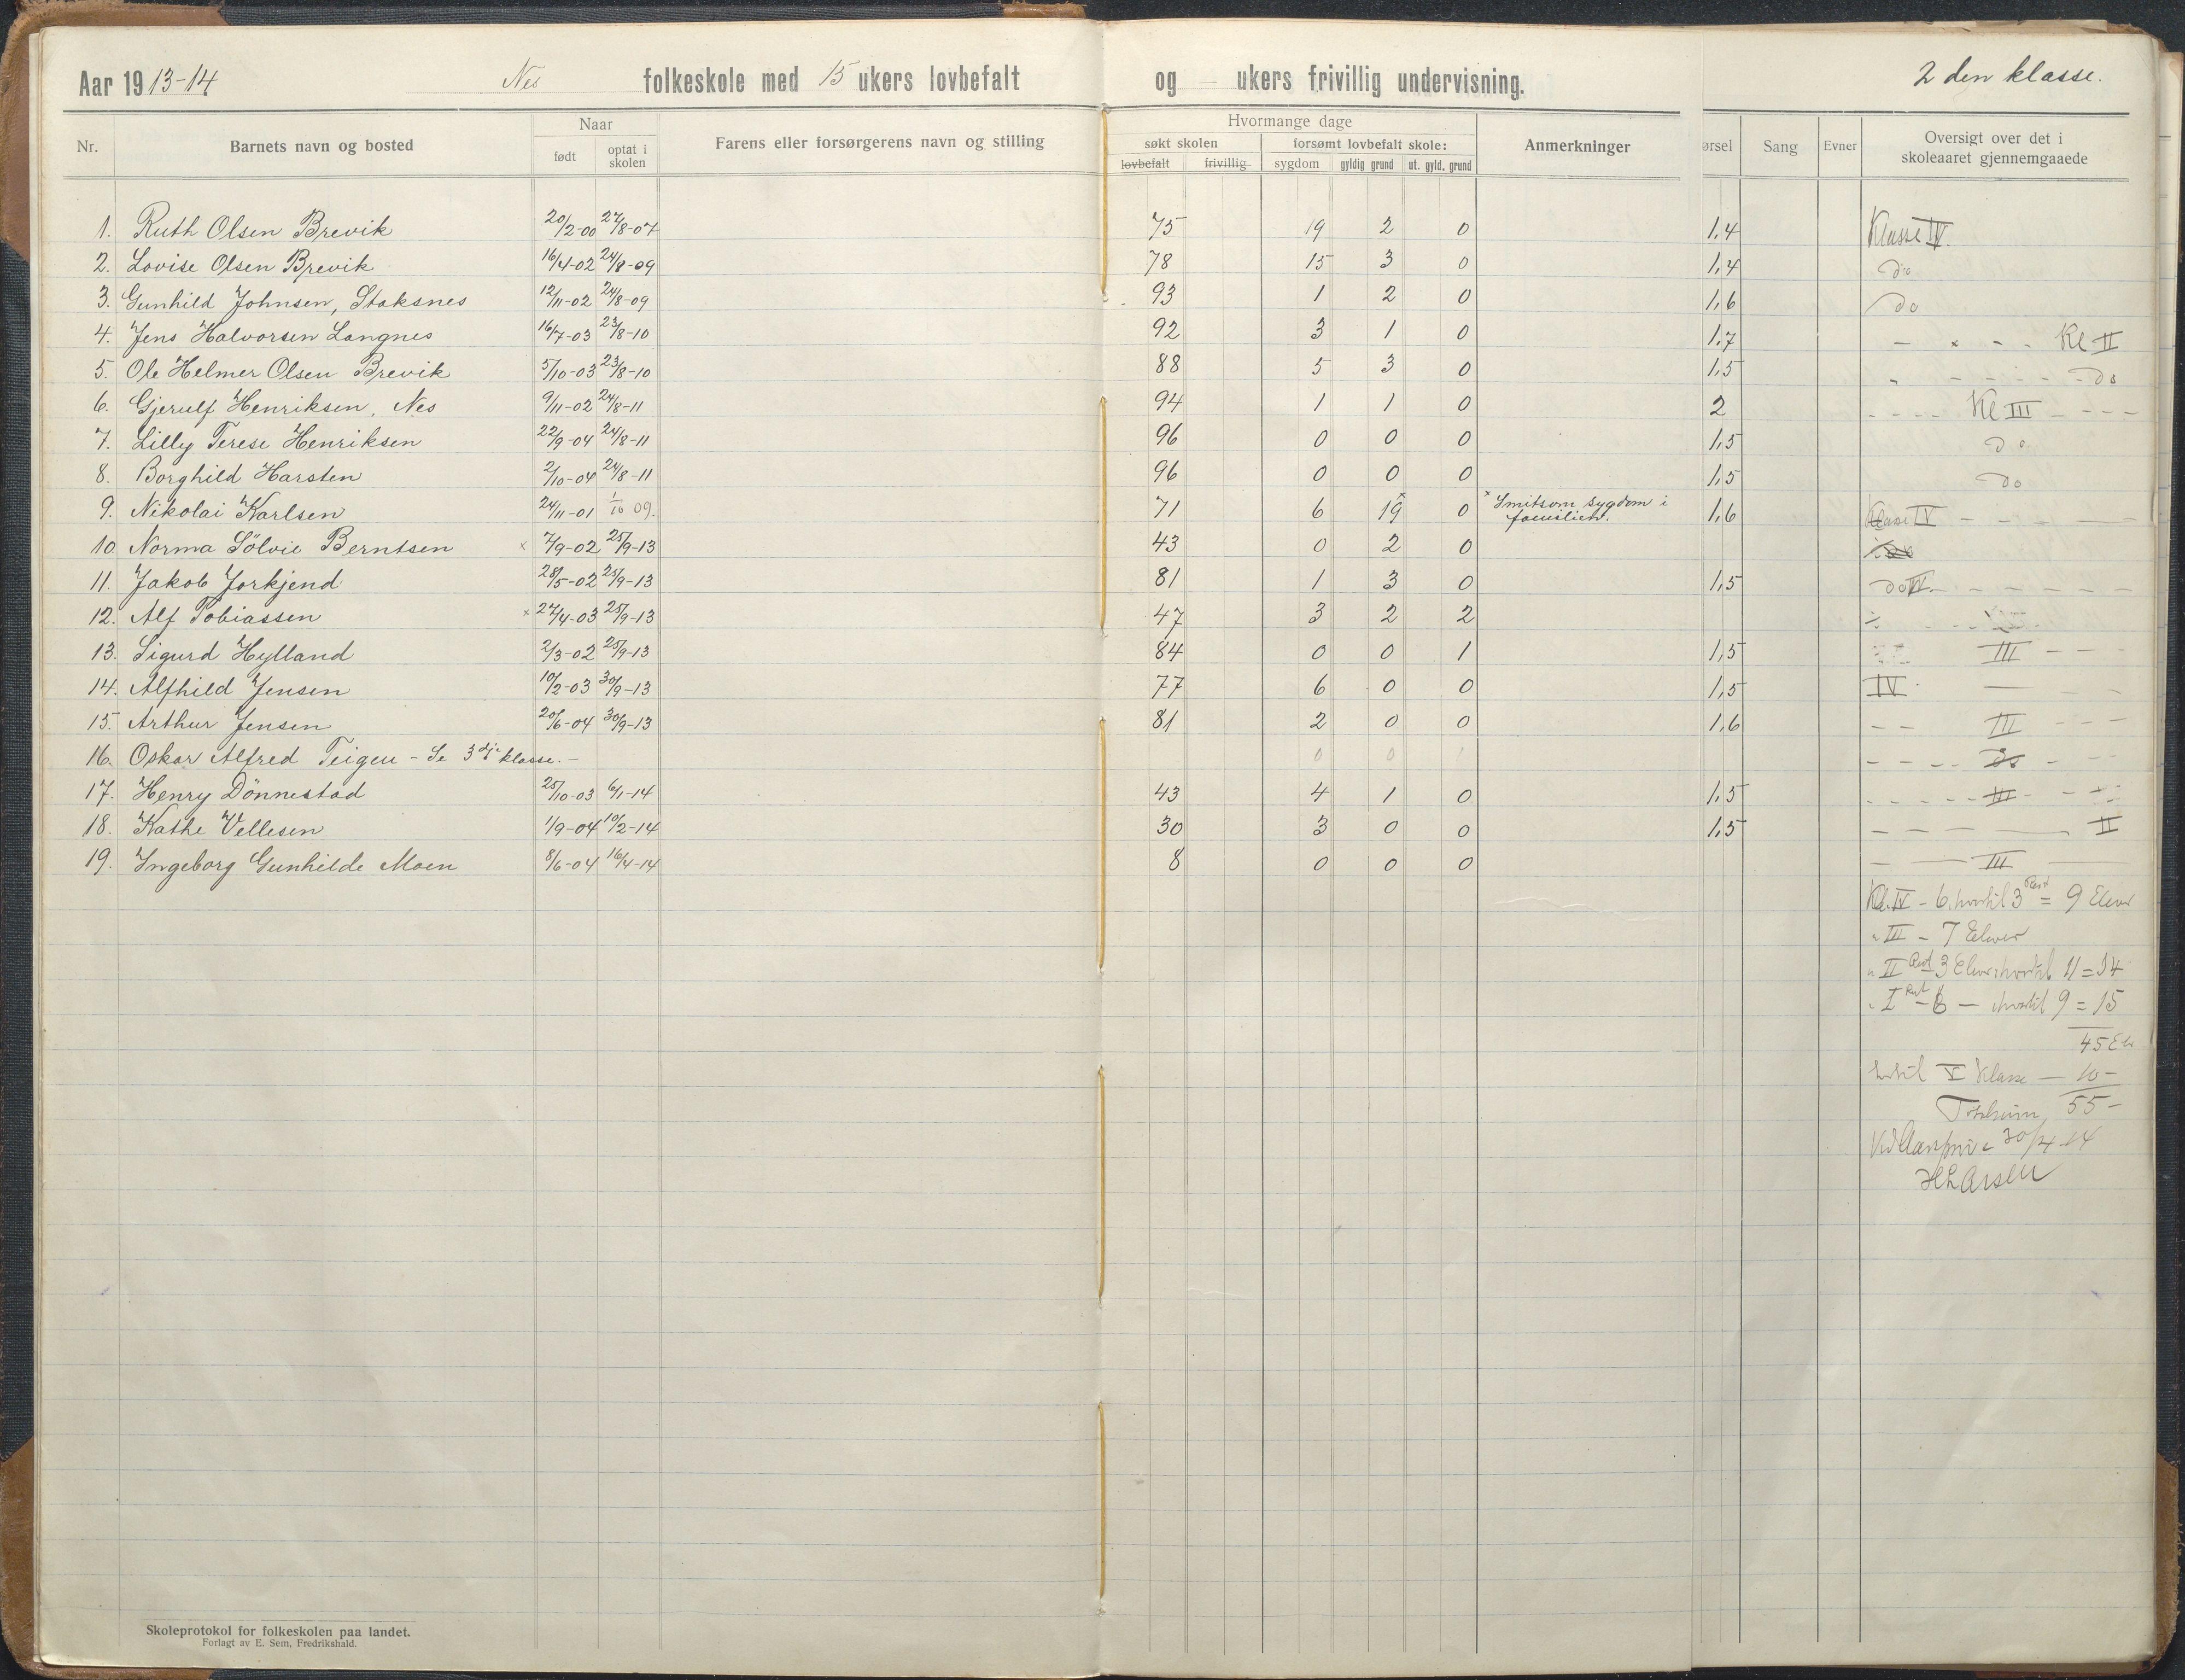 Aar 1913-14 Nes folkeskole med 15 ukers lovbefalt og — ukers frivillig undervisning. 2 den klasse.
Nr. Barnets navn og bosted Naar født optat i skolen Farens eller forsørgerens navn og stilling Hvormange dage søkt skolen lovbefalt frivillig forsømt lovbefalt skole: sygdom gyldig grund ut. gyld. grund Anmerkninger ørsel Sang Evner Oversigt over det i skoleaaret gjennemgaaede
1. Ruth Olsen Brevik 20/2-00 27/8-07 75 19 2 0 1,4 Klasse IV.
2. Lovise Olsen Brevik 16/4-02 24/8-09 78 15 3 0 1,4 do
3. Gunhild Johnsen, Staksnes 12/11-02 24/8-09 93 1 2 0 1,6 do
4. Jens Halvorsen Langnes 16/7-03 23/8-10 92 3 1 0 1,7 Kl II
5. Ole Helmer Olsen Brevik 5/10-03 23/8-10 88 5 3 0 1,5 do
6. Gjerulf Henriksen, Nes 9/11-02 24/8-11 94 1 1 0 2 Kl III
7. Lilly Terese Henriksen 22/9-04 24/8-11 96 0 0 0 1,5 do
8. Borghild Harsten 2/10-04 24/8-11 96 0 0 0 1,5 do
9. Nikolai Karlsen 24/11-01 1/10 09. 71 6 19 x 0 x Smitsom sygdom i familien. 1,6 Klasse IV
10. Norma Sölvie Berntsen x 7/9-02 25/9-13 43 0 2 0
11. Jakob Jorkjend 28/5-02 25/9-13 81 1 3 0 1,5 do IV
12. Alf Tobiassen x 27/4-03 25/9-13 47 3 2 2
13. Sigurd Hylland 2/3-02 25/9-13 84 0 0 1 1,5 III
14. Alfhild Jensen 10/2-03 30/9-13 77 6 0 0 1,5 IV
15. Arthur Jensen 20/6-04 30/9-13 81 2 0 0 1,6 III
16. Oskar Alfred Teigen - Se 3dje klasse. - 0 0 1 do
17. Henry Dönnestad 25/10-03 6/1-14 43 4 1 0 1,5 III
18. Kathe Vellesen 1/9-04 10/2-14 30 3 0 0 1,5 II
19. Ingeborg Gunhilde Moen 8/6-04 16/4-14 8 0 0 0 III
Kl. IV - 6, hvortil 3 = 9 Elever
" III - 7 Elever
" II 3 Elever hvortil 11 = 14
" I - 6 — hvortil 9 = 15
45 Elv
hertil V Klasse — 10 -
55 -
30/4-14
HLarsen
Skoleprotokol for folkeskolen paa landet.
Forlagt av E. Sem, Fredrikshald.